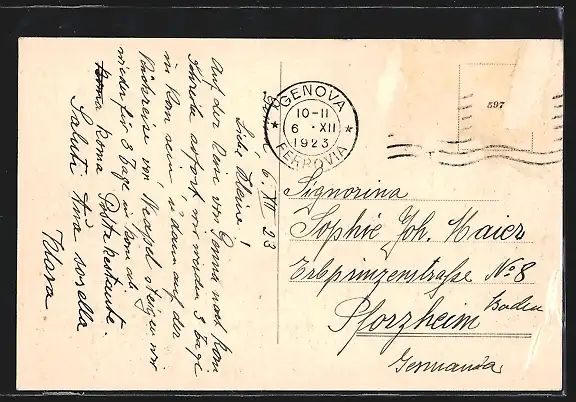 Genova 6. XII 23
Liebe Kleine!
Auf der Reise von Genua nach Rom
Schreibe sofort, wir werden 3 Tage
in Rom sein u. dann auf der
Rückreise von Neapel steigen wir
wieder für 3 Tage in Rom ab.
Roma Posta restante.
Saluti tua sorella
Klara
GENOVA
10-11
6 · XII
1923
FERROVIA
597
Signorina
Sophie Joh. Maier
Erbprinzenstraße No 8
Pforzheim Baden
Germania